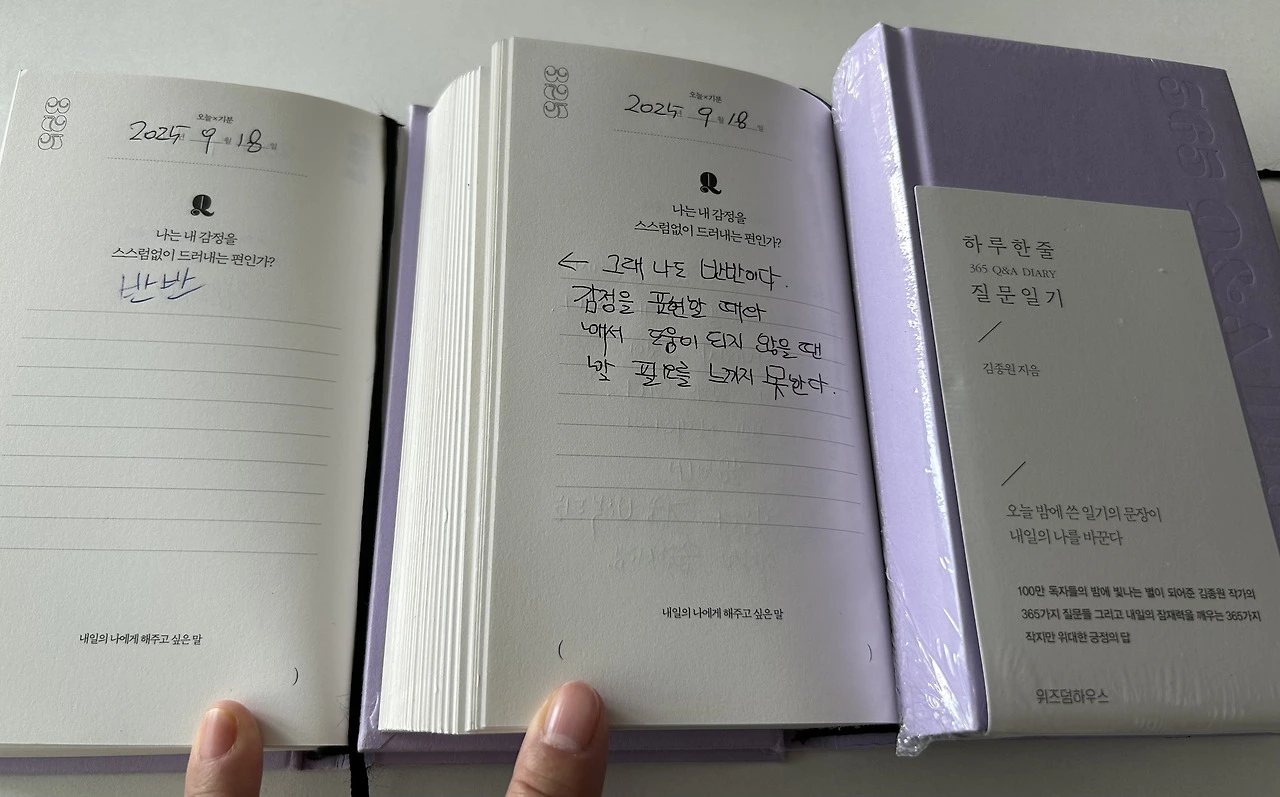 325
오늘×기분
2025년 9월 18일
Q
나는 내 감정을
스스럼없이 드러내는 편인가?
반반
내일의 나에게 해주고 싶은 말
)
325
오늘×기분
2025년 9월 18일
Q
나는 내 감정을
스스럼없이 드러내는 편인가?
← 그래 나도 반반이다.
감정을 표현할 때마
도움이 되지 않을 땐
필요를 느끼지 못한다.
내일의 나에게 해주고 싶은 말
( )
365 Q&A
하루 한 줄
365 Q&A DIARY
질문 일기
김종원 지음
오늘 밤에 쓴 일기의 문장이
내일의 나를 바꾼다
100만 독자들의 밤에 빛나는 별이 되어준 김종원 작가의
365가지 질문들 그리고 내일의 잠재력을 깨우는 365가지
작지만 위대한 긍정의 답
위즈덤하우스